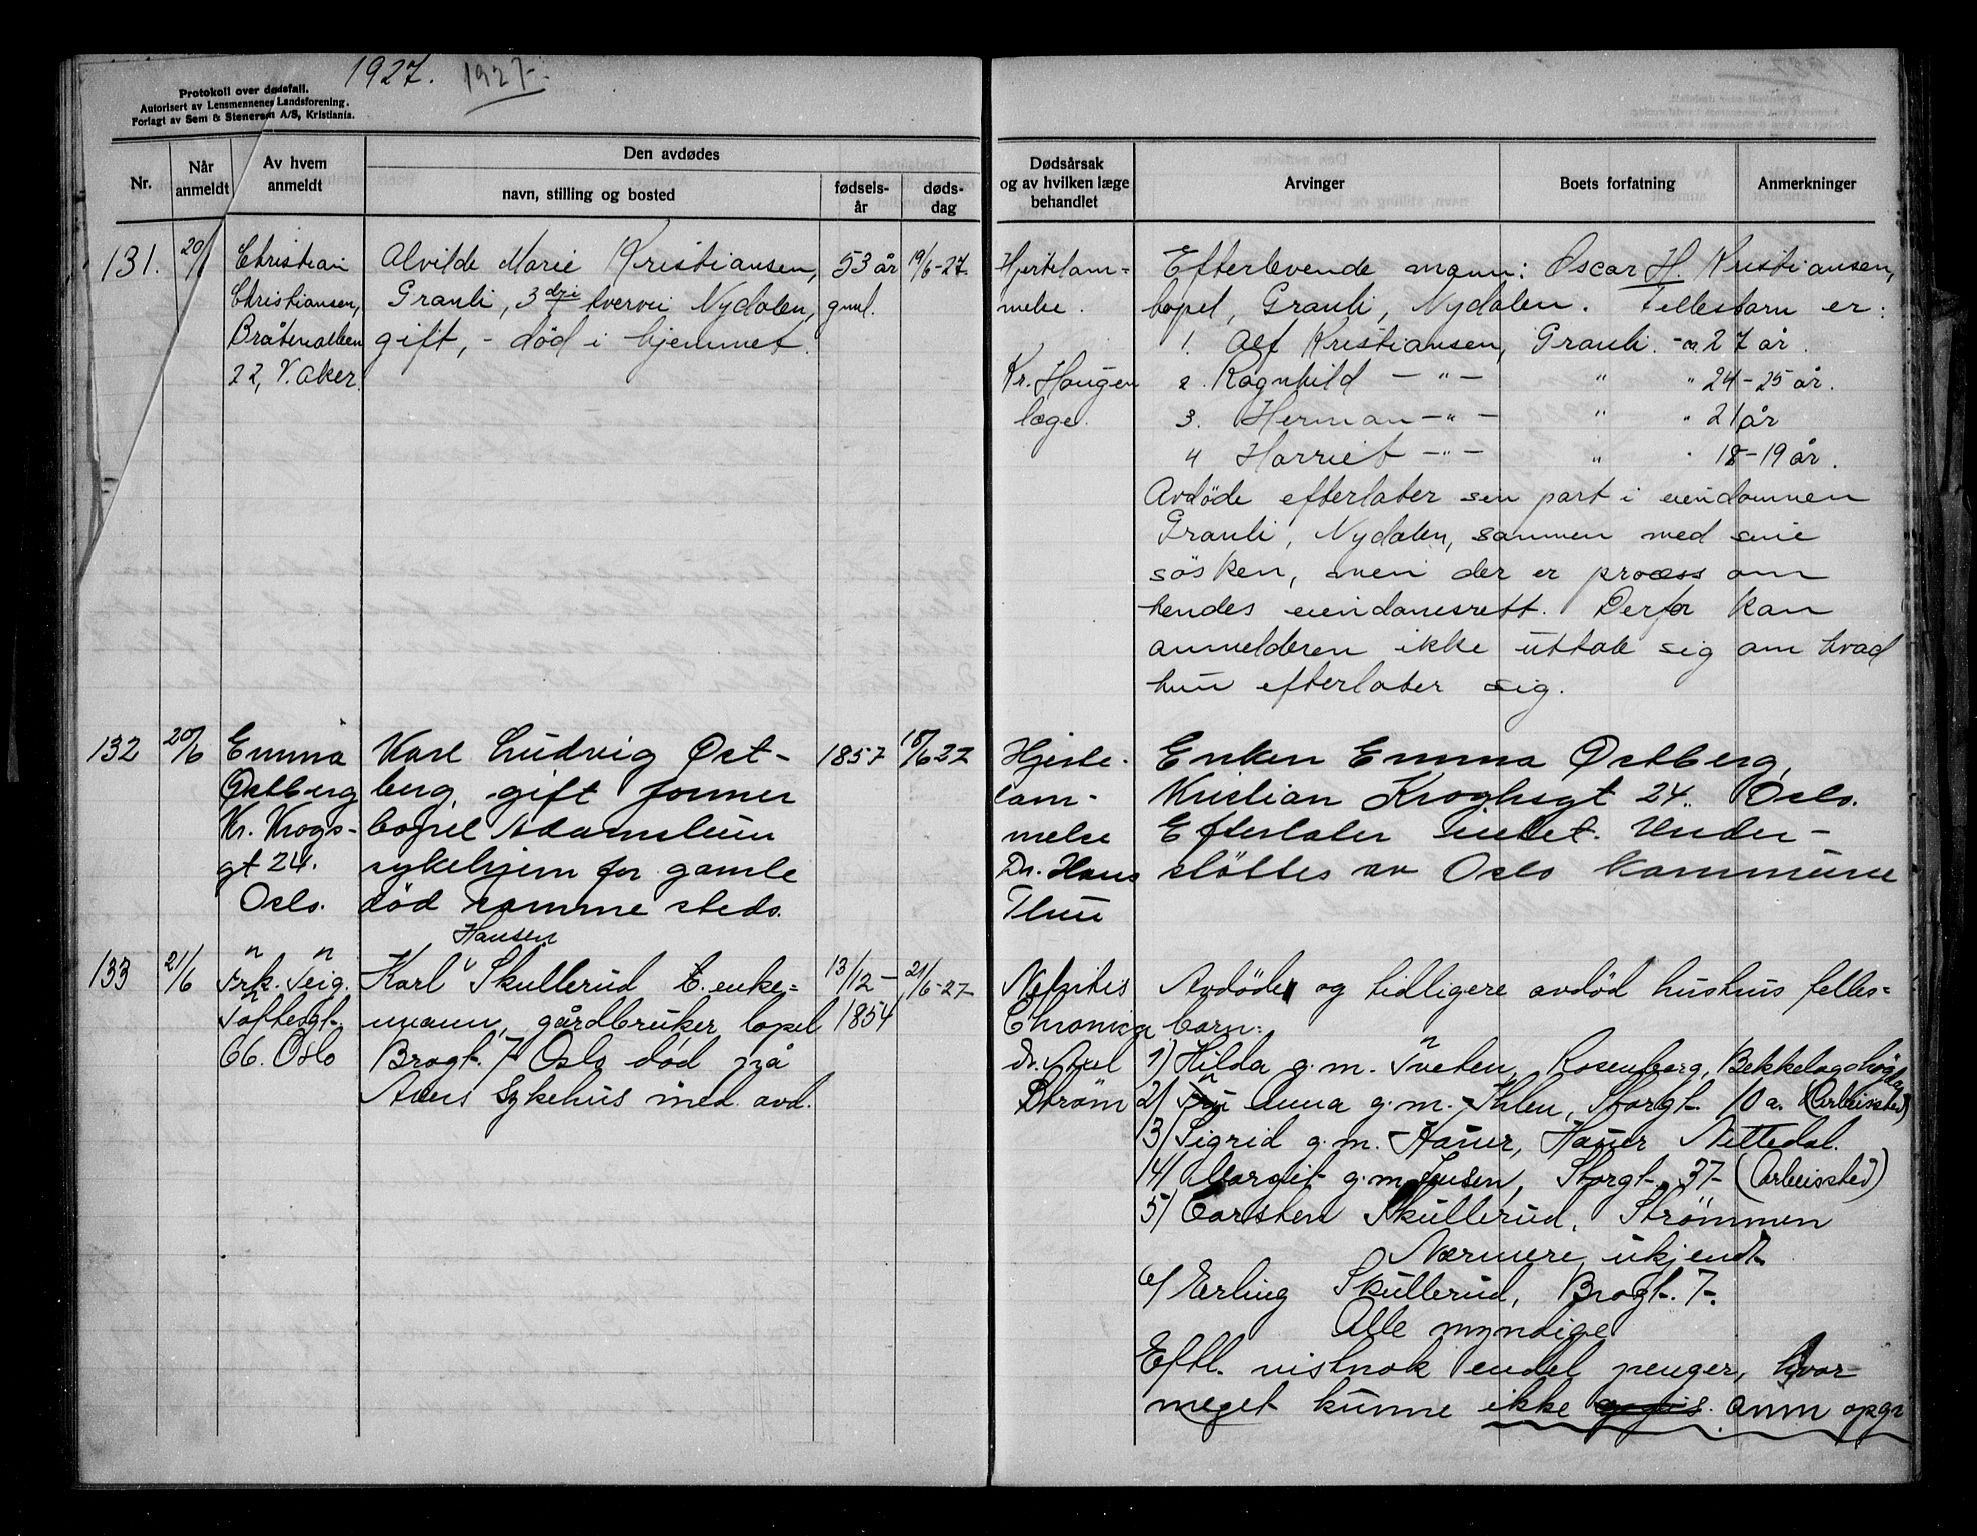 1927. 1927.
Protokoll over dødsfall.
Autorisert av Lensmennenes Landsforening.
Forlagt av Sem & Stenersen A/S, Kristiania.
Nr.
Når anmeldt
Av hvem anmeldt
Den avdødes
navn, stilling og bosted
fødsels-år
døds-dag
Dødsårsak og av hvilken læge behandlet
Arvinger
Boets forfatning
Anmerkninger
131.
20/6
Christian
Christiansen,
Bråtenalleen
22, V. Aker.
Alvilde Marie Kristiansen,
Granli, 3dje tverrvei Nydalen,
gift, - død i hjemmet.
53 år
gml.
19/6-27.
Hjertelam-
melse.
Kr. Haugen
læge.
Efterlevende mann: Oscar H. Kristiansen,
bopel, Granli, Nydalen. Fellesbarn er:
1. Alf Kristiansen, Granli. - ca. 27 år.
2. Ragnhild - " - " " 24-25 år.
3. Herman - " - " " 21 år
4 Harriet - " - " " 18-19 år.
Avdöde efterlater sin part i eiendommen
Granli, Nydalen, sammen med sine
sösken, men der er process om
hendes eiendomsrett. Derfor kan
anmelderen ikke uttale sig om hvad
hun efterlater sig.
132
20/6
Emma
Østberg
Kr. Krogs-
gt 24.
Oslo.
Karl Ludvig Øst-
berg, gift former
bopel Adamstuen
sykehjem for gamle
død samme steds.
1857
18/6 27
Hjerte-
lam-
melse
Dr. Hans
Thue
Enken Emma Østberg,
Kristian Kroghsgt 24. Oslo.
Efterlater intet. Under-
støttes av Oslo kommune
133
21/6
Frk. Teig.
Toftesgt.
66. Oslo
Hansen
Karl Skullerud enke-
mann, gårdbruker bopel
Brogt. 7 Oslo død på
Akers sykehus med. avd.
13/12-
1854
21/6-27-
Nefritis
Chronica
dr. Axel
Strøm
Avdøde og tidligere avdød hustrus felles-
barn:
1) Hilda g.m. Tveten, Rosenborg, Bekkelagshøgda
2) Fru Anna g.m. Ihlen, Storgt. 10 a. (Arbeissted)
3) Sigrid g.m. Hauer, Hauer Nittedal.
4) Margit g.m. Jensen, Storgt. 37- (Arbeissted)
5) Carsten Skullerud, Strømmen
Nærmere ukjendt
6) Erling Skullerud, Brogt. 7.
Alle myndige
Eftl. vistnok endel penger, hvor
meget kunne ikke anm opgi